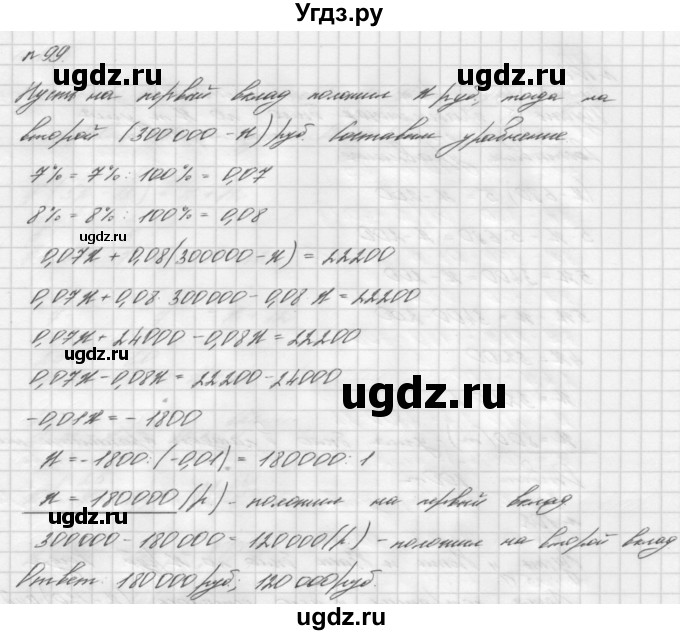 Угдз.ру
n 99
Пусть на первый вклад положил x руб, тогда на
второй (300000 - x) руб. Составим уравнение
7% = 7% : 100% = 0,07
8% = 8% : 100% = 0,08
0,07x + 0,08(300000 - x) = 22200
0,07x + 0,08 · 300000 - 0,08 x = 22200
0,07x + 24000 - 0,08x = 22200
0,07x - 0,08x = 22200 - 24000
-0,01x = - 1800
x = -1800 : (-0,01) = 180000 : 1
x = 180000 (р) - положил на первый вклад
300000 - 180000 = 120000(р) - положил на второй вклад
Ответ: 180000 руб; 120000 руб.
ugdz.ru
ugdz.ru
ugdz.ru
ugdz.ru
ugdz.ru
ugdz.ru
ugdz.ru
ugdz.ru
ugdz.ru